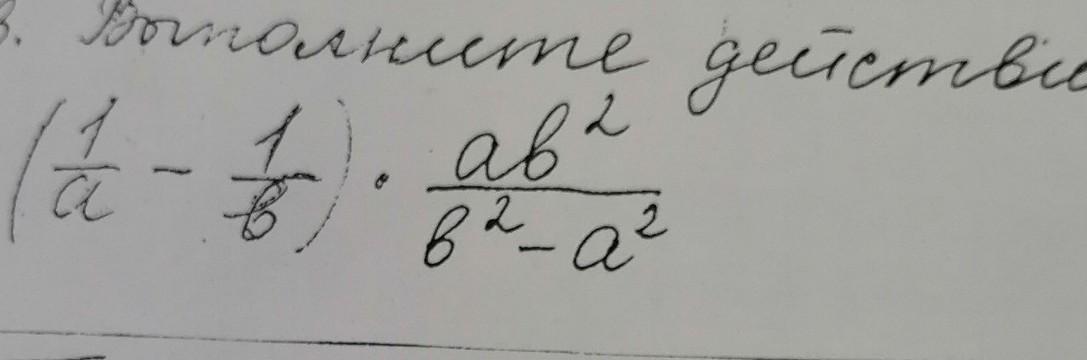 3. Выполните действи
(1/a - 1/b) · ab²/(b² - a²)